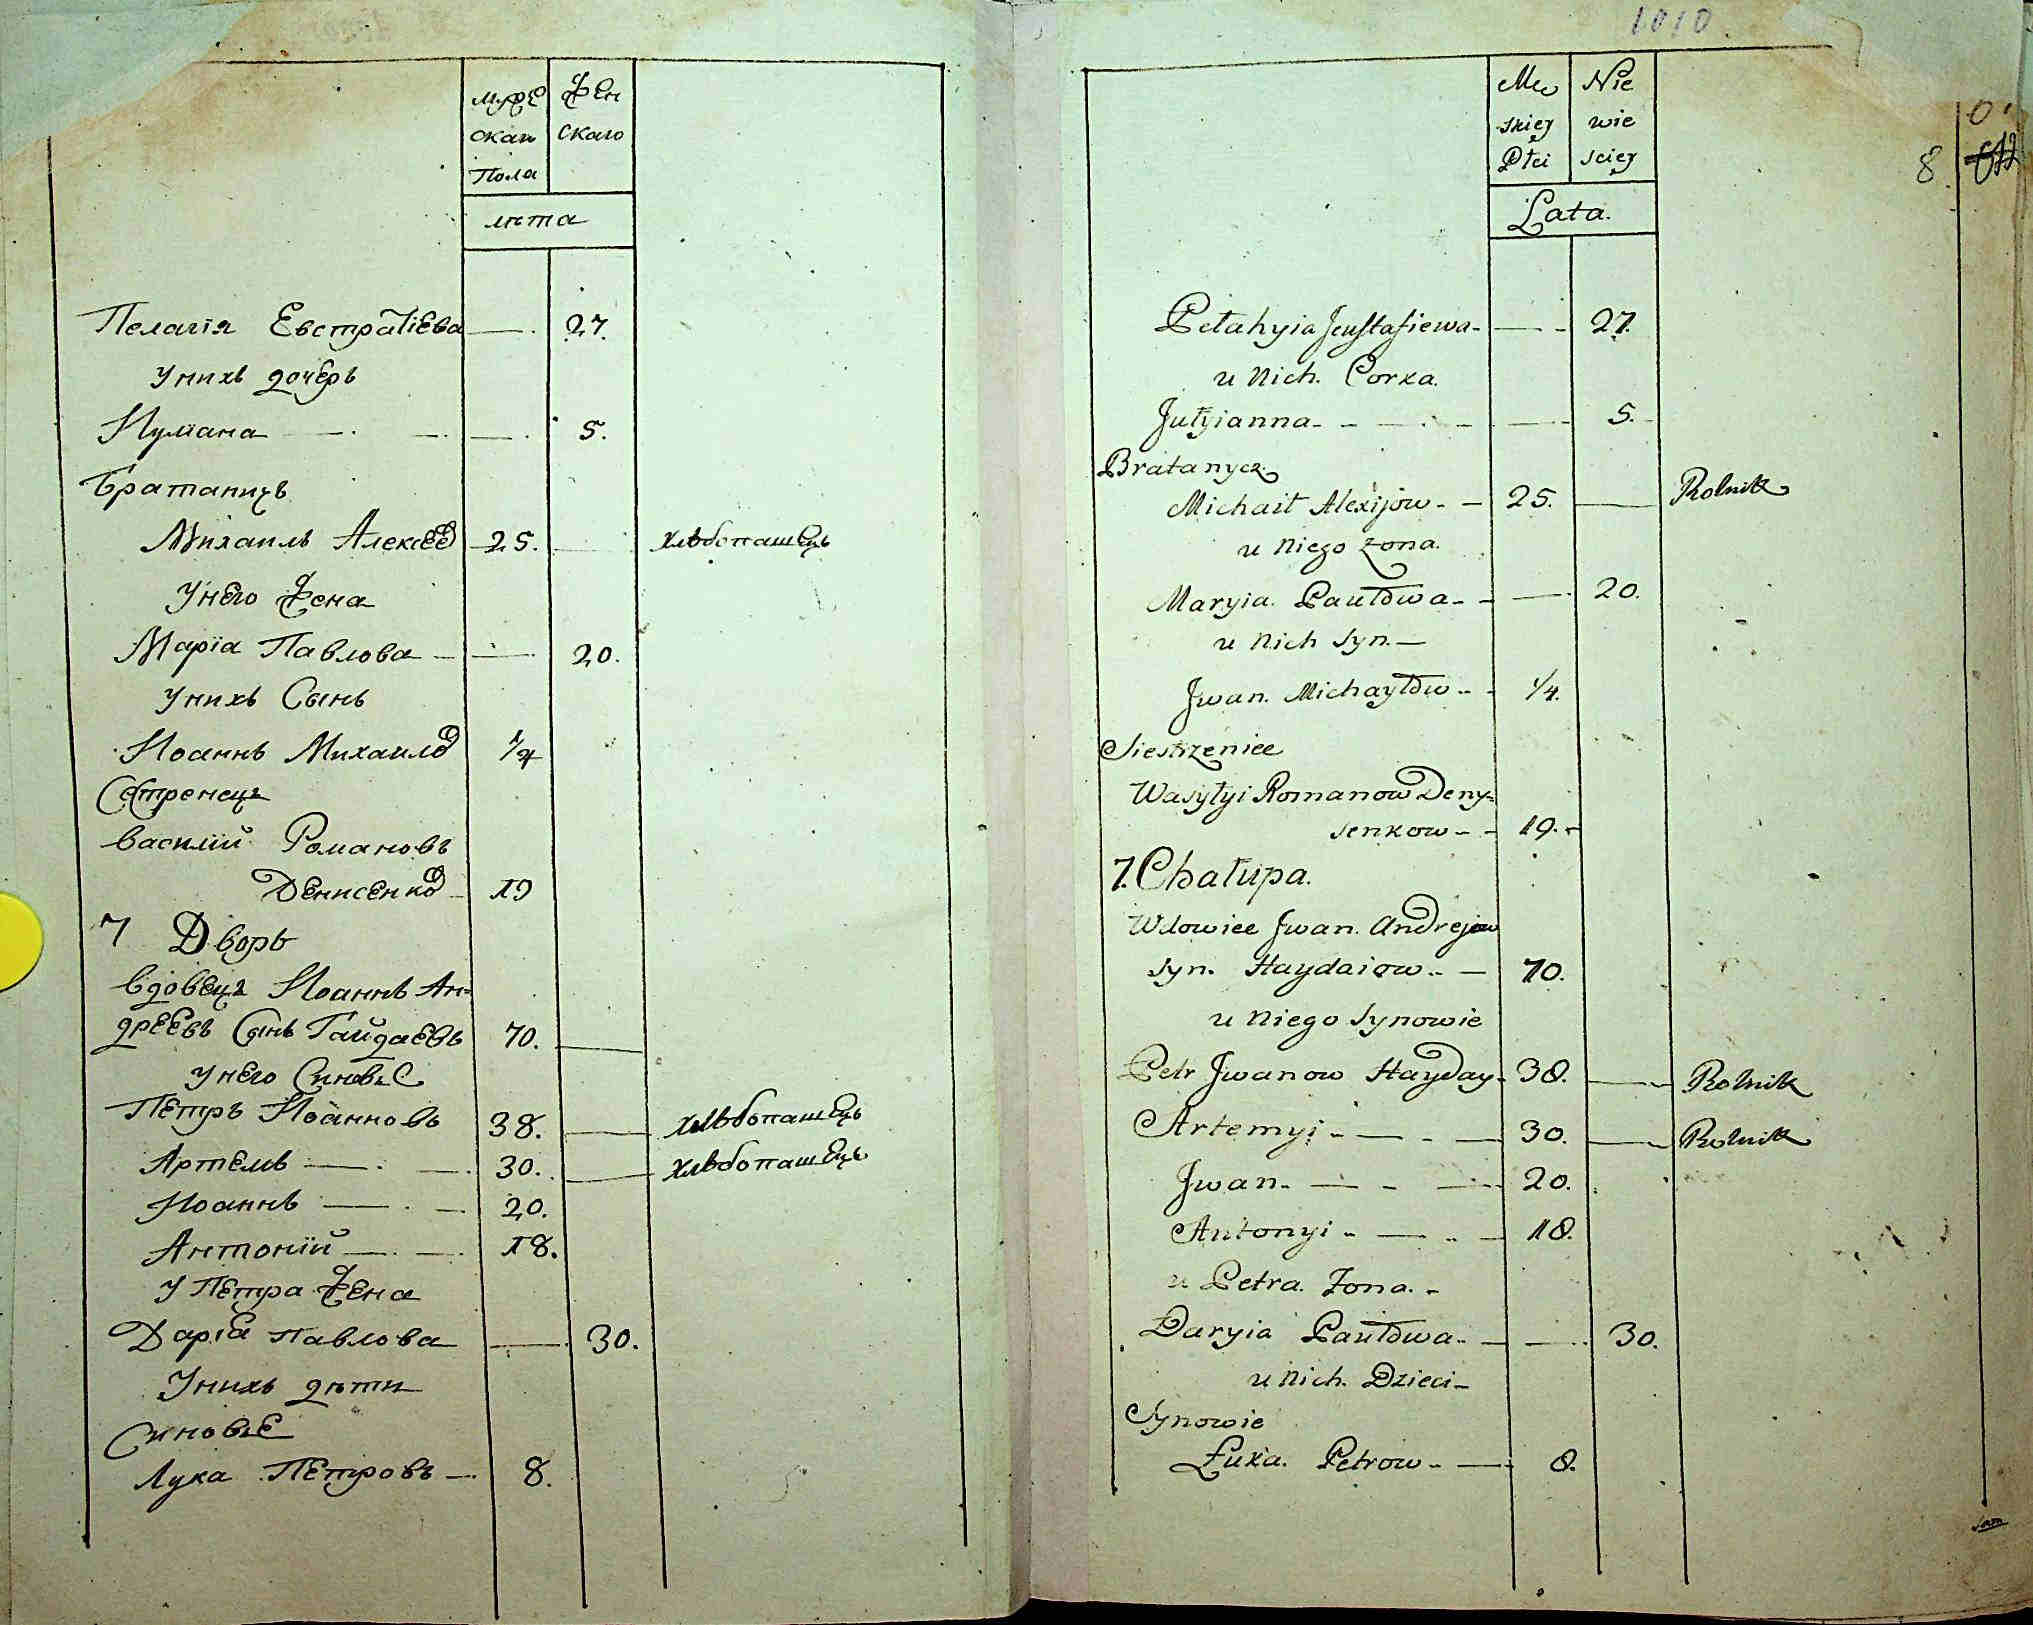 муже Жен
скаго скаго
Пола
лѣта
Пелагія Евстратіева — 27.
Унихъ дочерь
Иуліана — — — 5.
Братаничь
Михаилъ Алексеев 25. — хлѣбопашець
Унего Жена
Маріа Павлова — — 20.
Унихъ Сынъ
Иоаннъ Михаилов 1/4
Сестренецъ
василій Романовъ
Денисенков — 19
7 Дворъ
вдовецъ Иоаннъ Ан=
дреевъ Сынъ Гайдаевъ 70. —
Унего Синове
Петръ Иоанновъ 38. — хлѣбопашець
Артемъ — — 30. — хлѣбопашець
Иоаннъ — — 20.
Антоній — — 18.
У Петра Жена
Даріа павлова — 30.
Унихъ дѣти
Синовье
Лука Петровъ — 8.
1010.
Mę Nie
skiey wie
Płci sciey
8.
Lata.
Pełahyia Jeustafiewa - — - 27.
u Nich. Corka.
Jułyianna - - — - — 5.
Bratanycz.
Michaił Alexijow - — 25. — Rolnik
u Niego żona.
Maryia. Paułowa - - — 20.
u Nich Syn. —
Jwan. Michayłow - - 1/4.
Siestrzeniec
Wasyłyi Romanow Deny=
senkow - - 19. -
7. Chałupa.
Wdowiec Jwan. Andrejew
Syn. Haydaiow - — 70.
u Niego Synowie
Petr Jwanow Hayday - 38. — Rolnik
Artemyi - — - — 30. — Rolnik
Jwan - — - — 20.
Antonyi - — - — 18.
u Petra. Żona. -
Daryia Paułowa - — — 30.
u Nich. Dzieci -
Synowie
Łuka. Petrow - — 8.